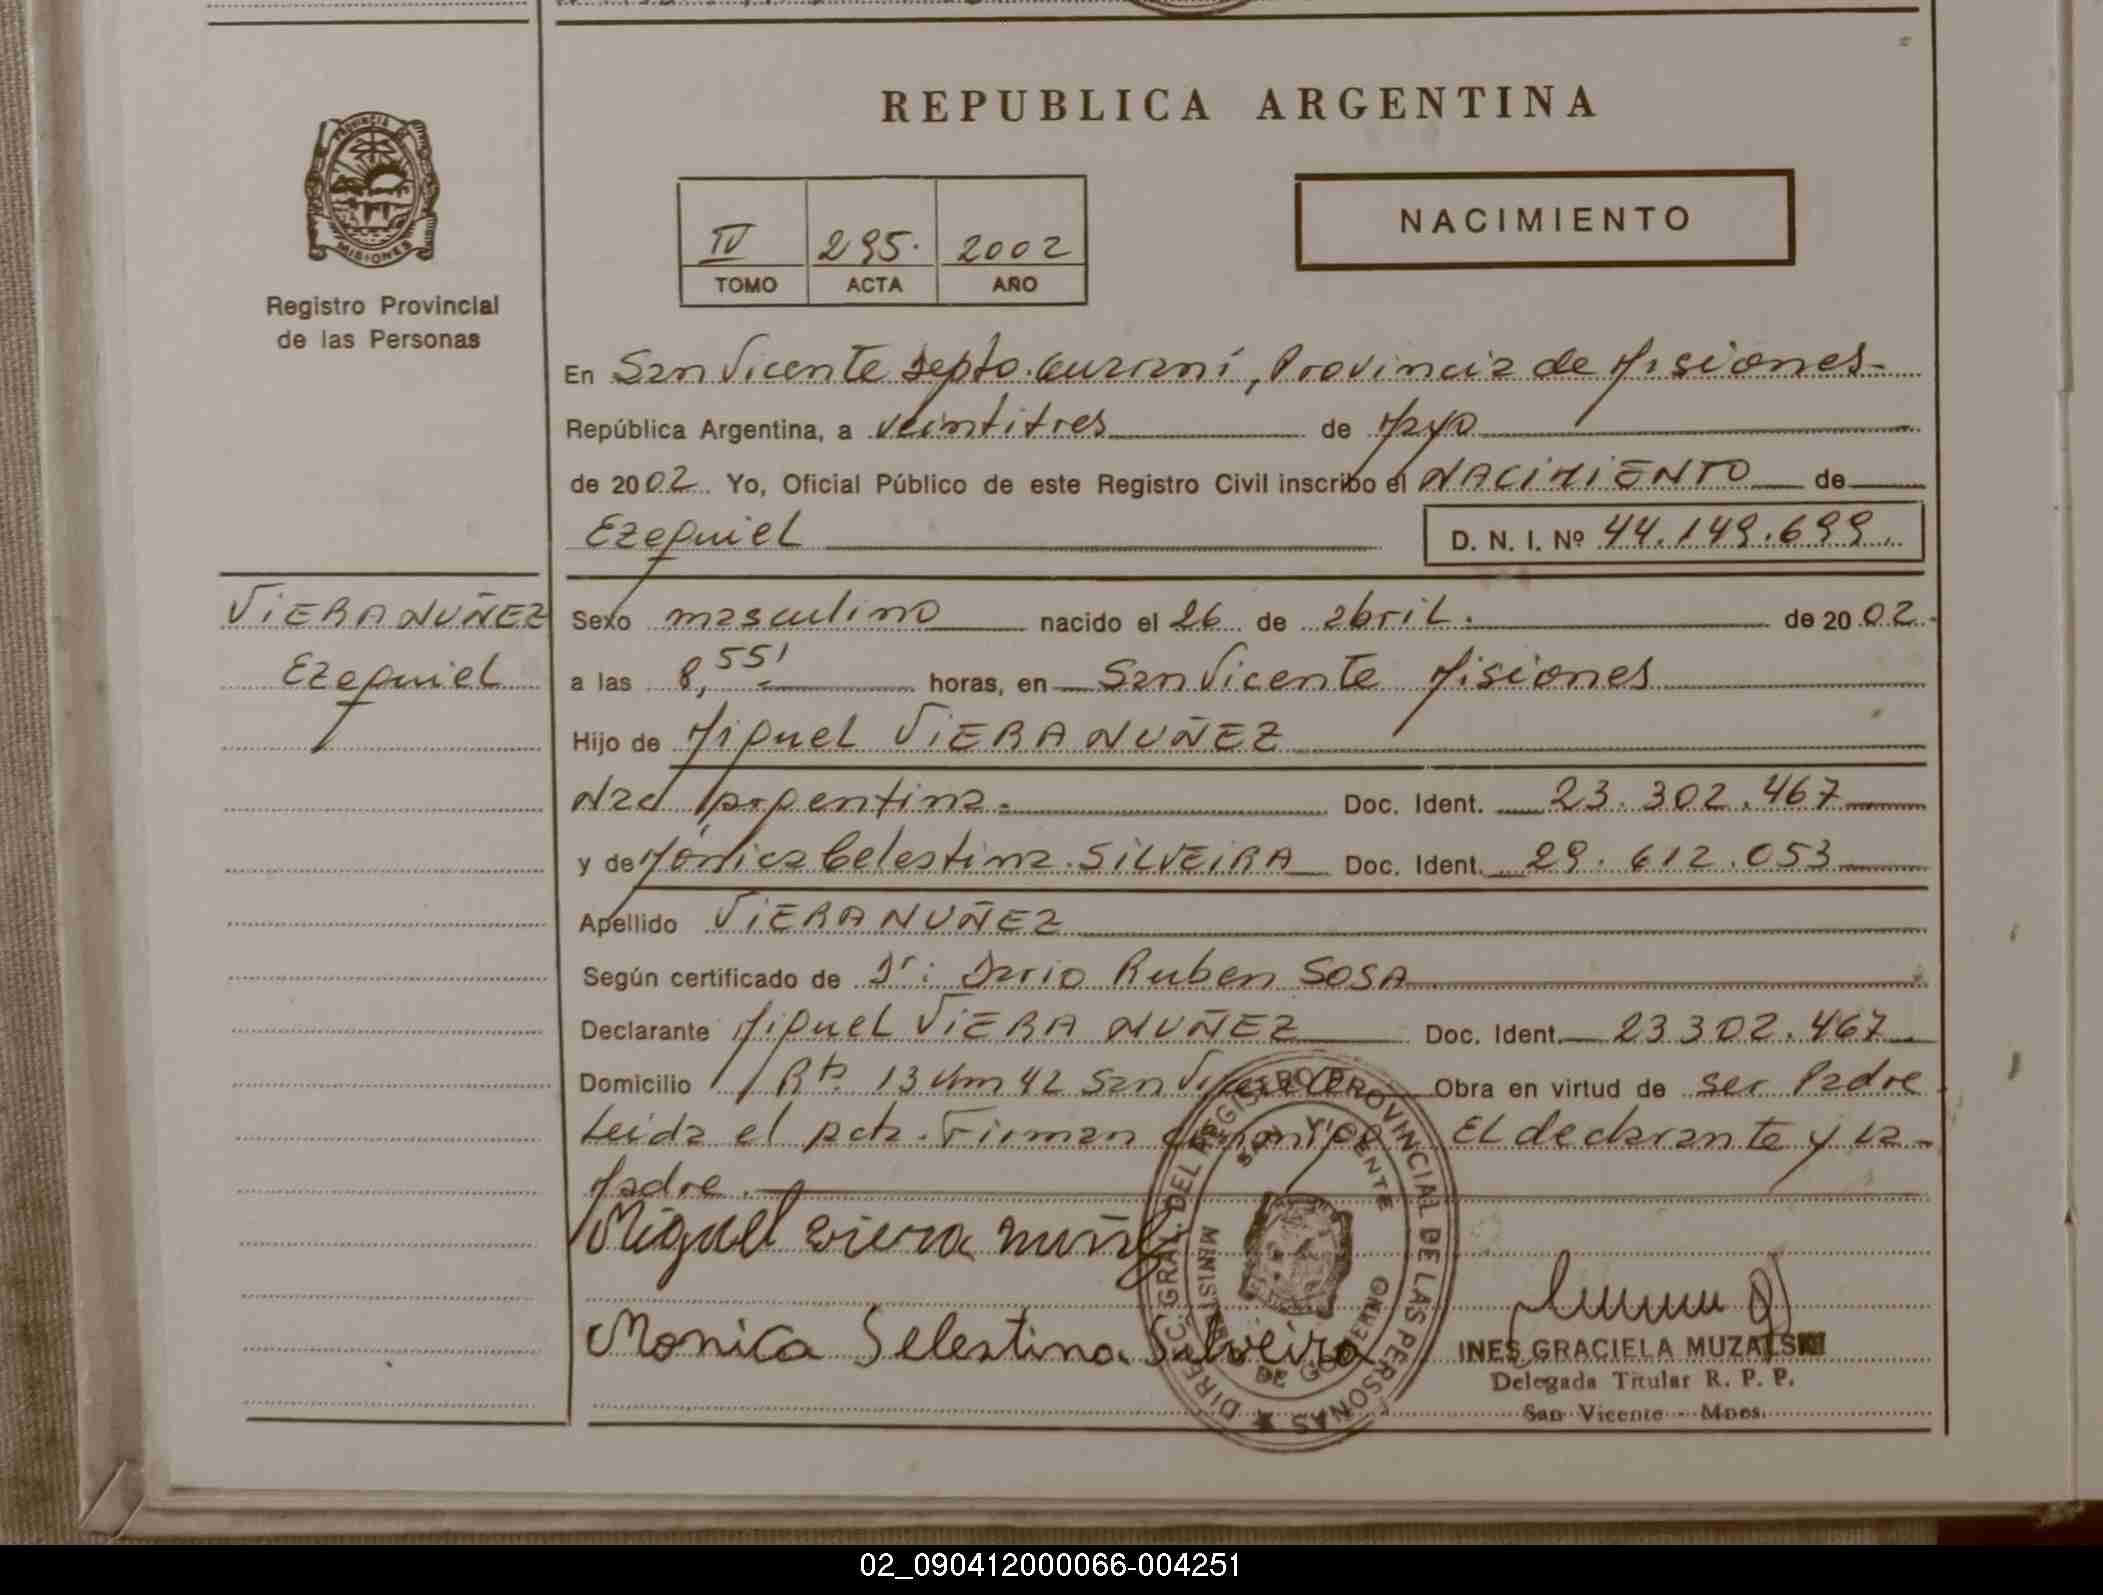 REPUBLICA ARGENTINA
PROVINCIA DE
MISIONES
Registro Provincial
de las Personas
NACIMIENTO
IV 295. 2002
TOMO ACTA AÑO
En San Vicente Depto. Guaraní, Provincia de Misiones
República Argentina, a veintitres de Mayo
de 2002 Yo, Oficial Público de este Registro Civil inscribo el NACIMIENTO de
Ezequiel D. N. I. Nº 44.149.699.
VIERA NUÑEZ
Ezequiel
Sexo masculino nacido el 26 de abril. de 2002.
a las 8,55' horas, en San Vicente Misiones
Hijo de Miguel VIERA NUÑEZ
Nac Argentina. Doc. Ident. 23.302.467
y de Mónica Celestina SILVEIRA Doc. Ident. 29.612.053
Apellido VIERA NUÑEZ
Según certificado de Dr: Dario Ruben SOSA
Declarante Miguel VIERA NUÑEZ Doc. Ident. 23302.467
Domicilio Rta. 13 Km 42 San Vicente Obra en virtud de ser Padre
Leida el acta. Firman conmigo El declarante y la
Madre.
Miguel viera nuñez
Monica Selestina Silveira
DIREC. GRAL. DEL REGISTRO PROVINCIAL DE LAS PERSONAS
SAN VICENTE
MINISTERIO DE GOBIERNO
INES GRACIELA MUZALSKI
Delegada Titular R. P. P.
San Vicente - Mnes.
02_090412000066-004251